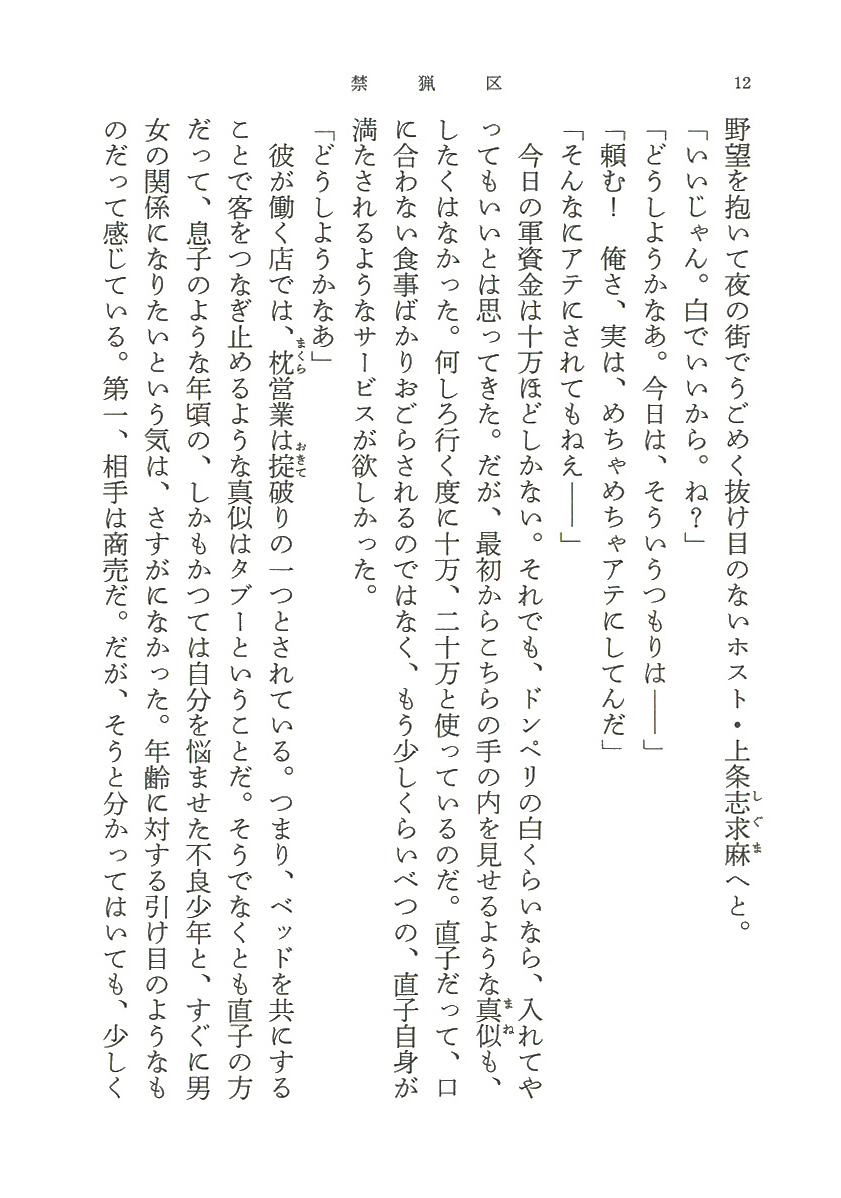 禁猟区
12
野望を抱いて夜の街でうごめく抜け目のないホスト・上条志求麻へと。
「いいじゃん。白でいいから。ね？」
「どうしようかなあ。今日は、そういうつもりは――」
「頼む！　俺さ、実は、めちゃめちゃアテにしてんだ」
「そんなにアテにされてもねえ――」
　今日の軍資金は十万ほどしかない。それでも、ドンペリの白くらいなら、入れてや
ってもいいとは思ってきた。だが、最初からこちらの手の内を見せるような真似も、
したくはなかった。何しろ行く度に十万、二十万と使っているのだ。直子だって、口
に合わない食事ばかりおごらされるのではなく、もう少しくらいべつの、直子自身が
満たされるようなサービスが欲しかった。
「どうしようかなあ」
　彼が働く店では、枕営業は掟破りの一つとされている。つまり、ベッドを共にする
ことで客をつなぎ止めるような真似はタブーということだ。そうでなくとも直子の方
だって、息子のような年頃の、しかもかつては自分を悩ませた不良少年と、すぐに男
女の関係になりたいという気は、さすがになかった。年齢に対する引け目のようなも
のだって感じている。第一、相手は商売だ。だが、そうと分かってはいても、少しく